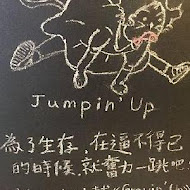 Jumpin' Up
為了生存,在逼不得已
的時候,就奮力一跳吧